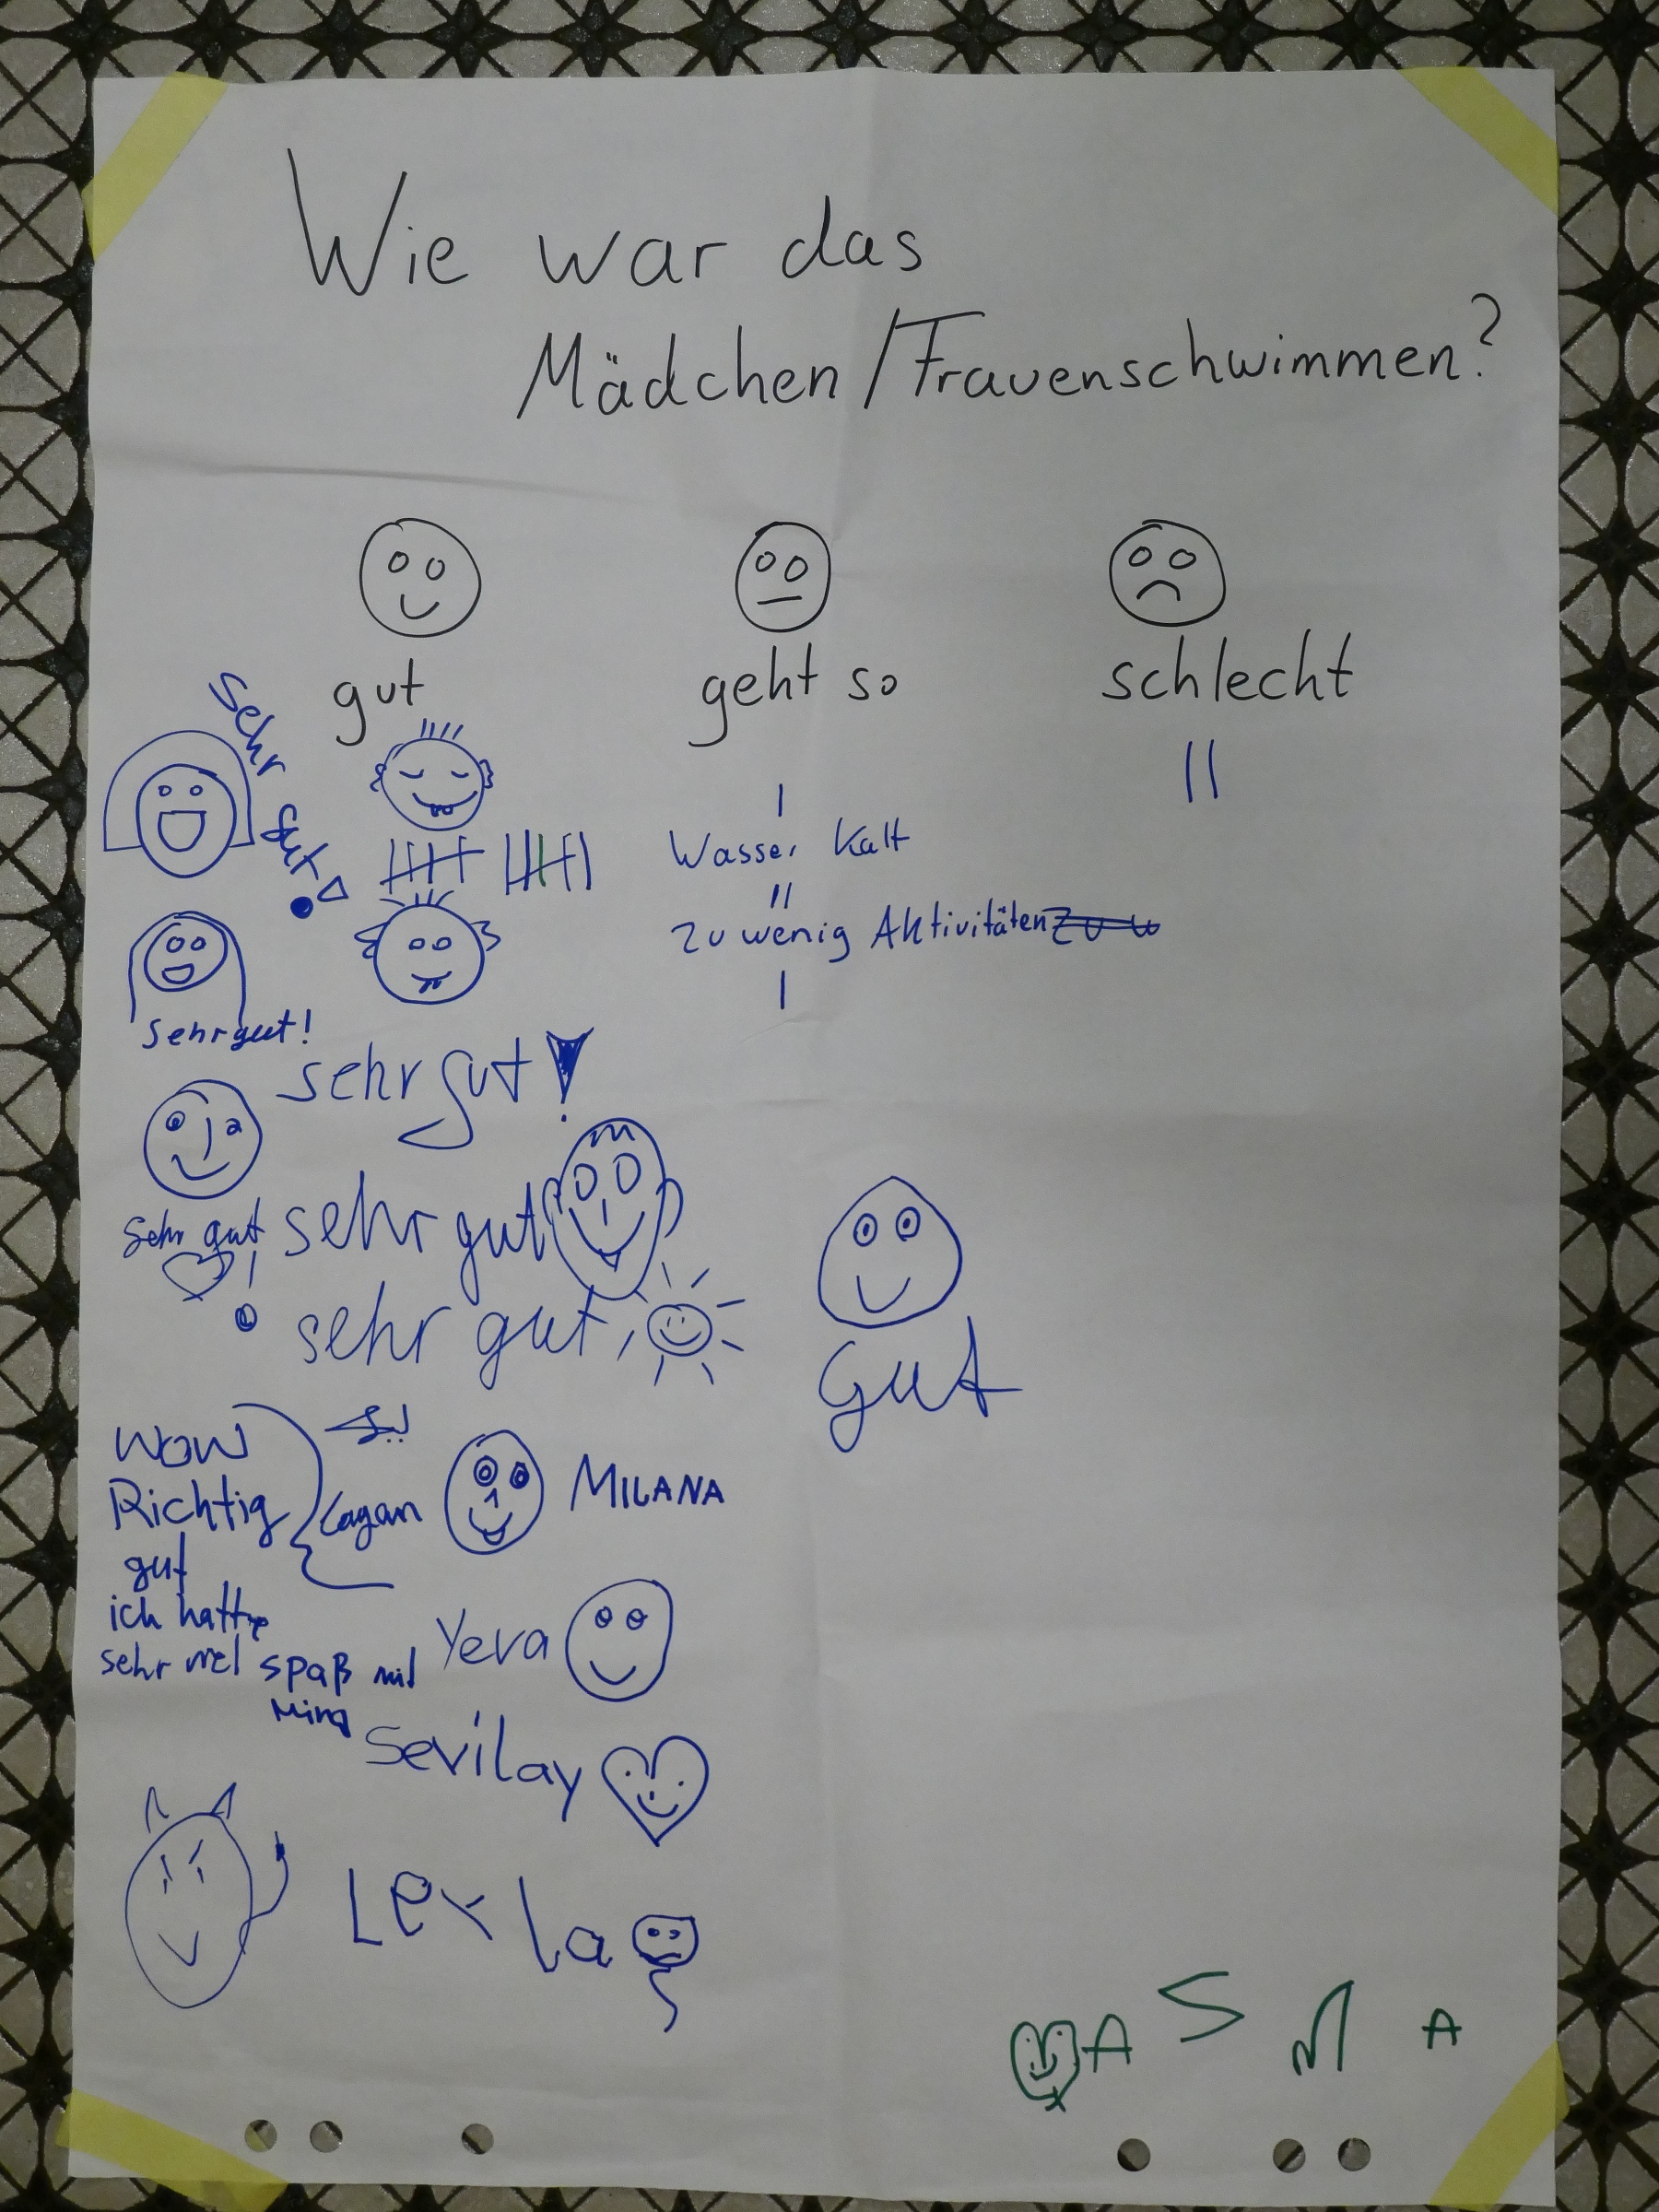 Wie war das
Mädchen/Frauenschwimmen?
gut
geht so
schlecht
Sehr gut!
Wasser Kalt
zu wenig Aktivitäten
sehr gut!
sehr gut!
sehr gut
Sehr gut!
sehr gut
Gut
WOW
Richtig
gut
ich hatte
sehr viel spaß mit
Mina
MILANA
Yeva
Sevilay